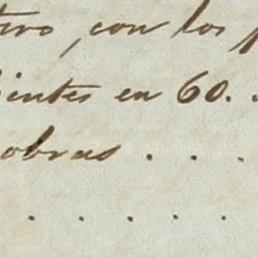 tivo, con los
ientes en 60.
obras . . .
. . . .